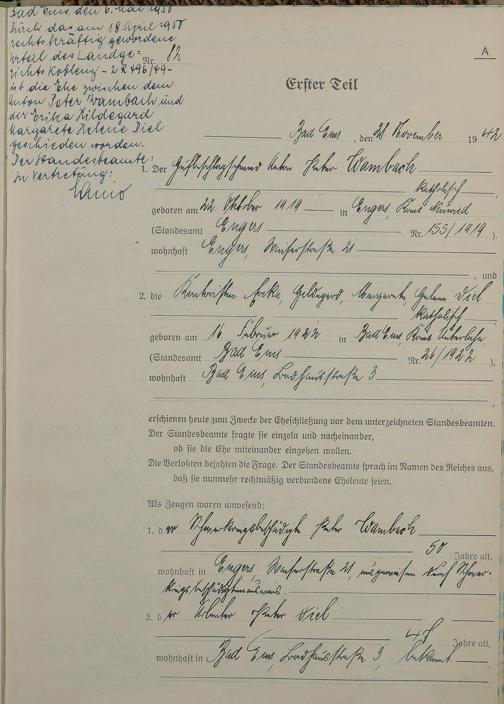 Bad Ems, den 6. Mai 1950
Durch das am 18. April 1950
rechtskräftig gewordene
Urteil des Landge-
richts Koblenz - 2 R 496/49 -
ist die Ehe zwischen dem
Anton Peter Wambach und
der Erika Hildegard
Margarete Helene Diel
geschieden worden.
Der Standesbeamte:
In Vertretung:
Nr. 82
A
Erster Teil
Bad Ems, den 28 November 1942
1. Der Peter Wambach
katholisch
geboren am 22. Oktober 1919 in Engers, Kreis Neuwied
(Standesamt Engers Nr. 155/1919).
wohnhaft Engers, 21
, und
2. die Erika, Hildegard, Margarete Helene Diel
katholisch
geboren am 16. Februar 1922 in Bad Ems, Kreis Unterlahn
(Standesamt Bad Ems Nr. 26/1922),
wohnhaft Bad Ems, Badhausstraße 3
erschienen heute zum Zwecke der Eheschließung vor dem unterzeichneten Standesbeamten.
Der Standesbeamte fragte sie einzeln und nacheinander,
ob sie die Ehe miteinander eingehen wollen.
Die Verlobten bejahten die Frage. Der Standesbeamte sprach im Namen des Reiches aus,
daß sie nunmehr rechtmäßig verbundene Eheleute seien.
Als Zeugen waren anwesend:
1. der Schwerkriegsbeschädigte Peter Wambach
50 Jahre alt,
wohnhaft in Engers, 21, ausgewiesen durch Schwer-
kriegsbeschädigtenausweis.
2. der Arbeiter Peter Diel
Jahre alt,
wohnhaft in Bad Ems, Badhausstraße 3, bekannt.